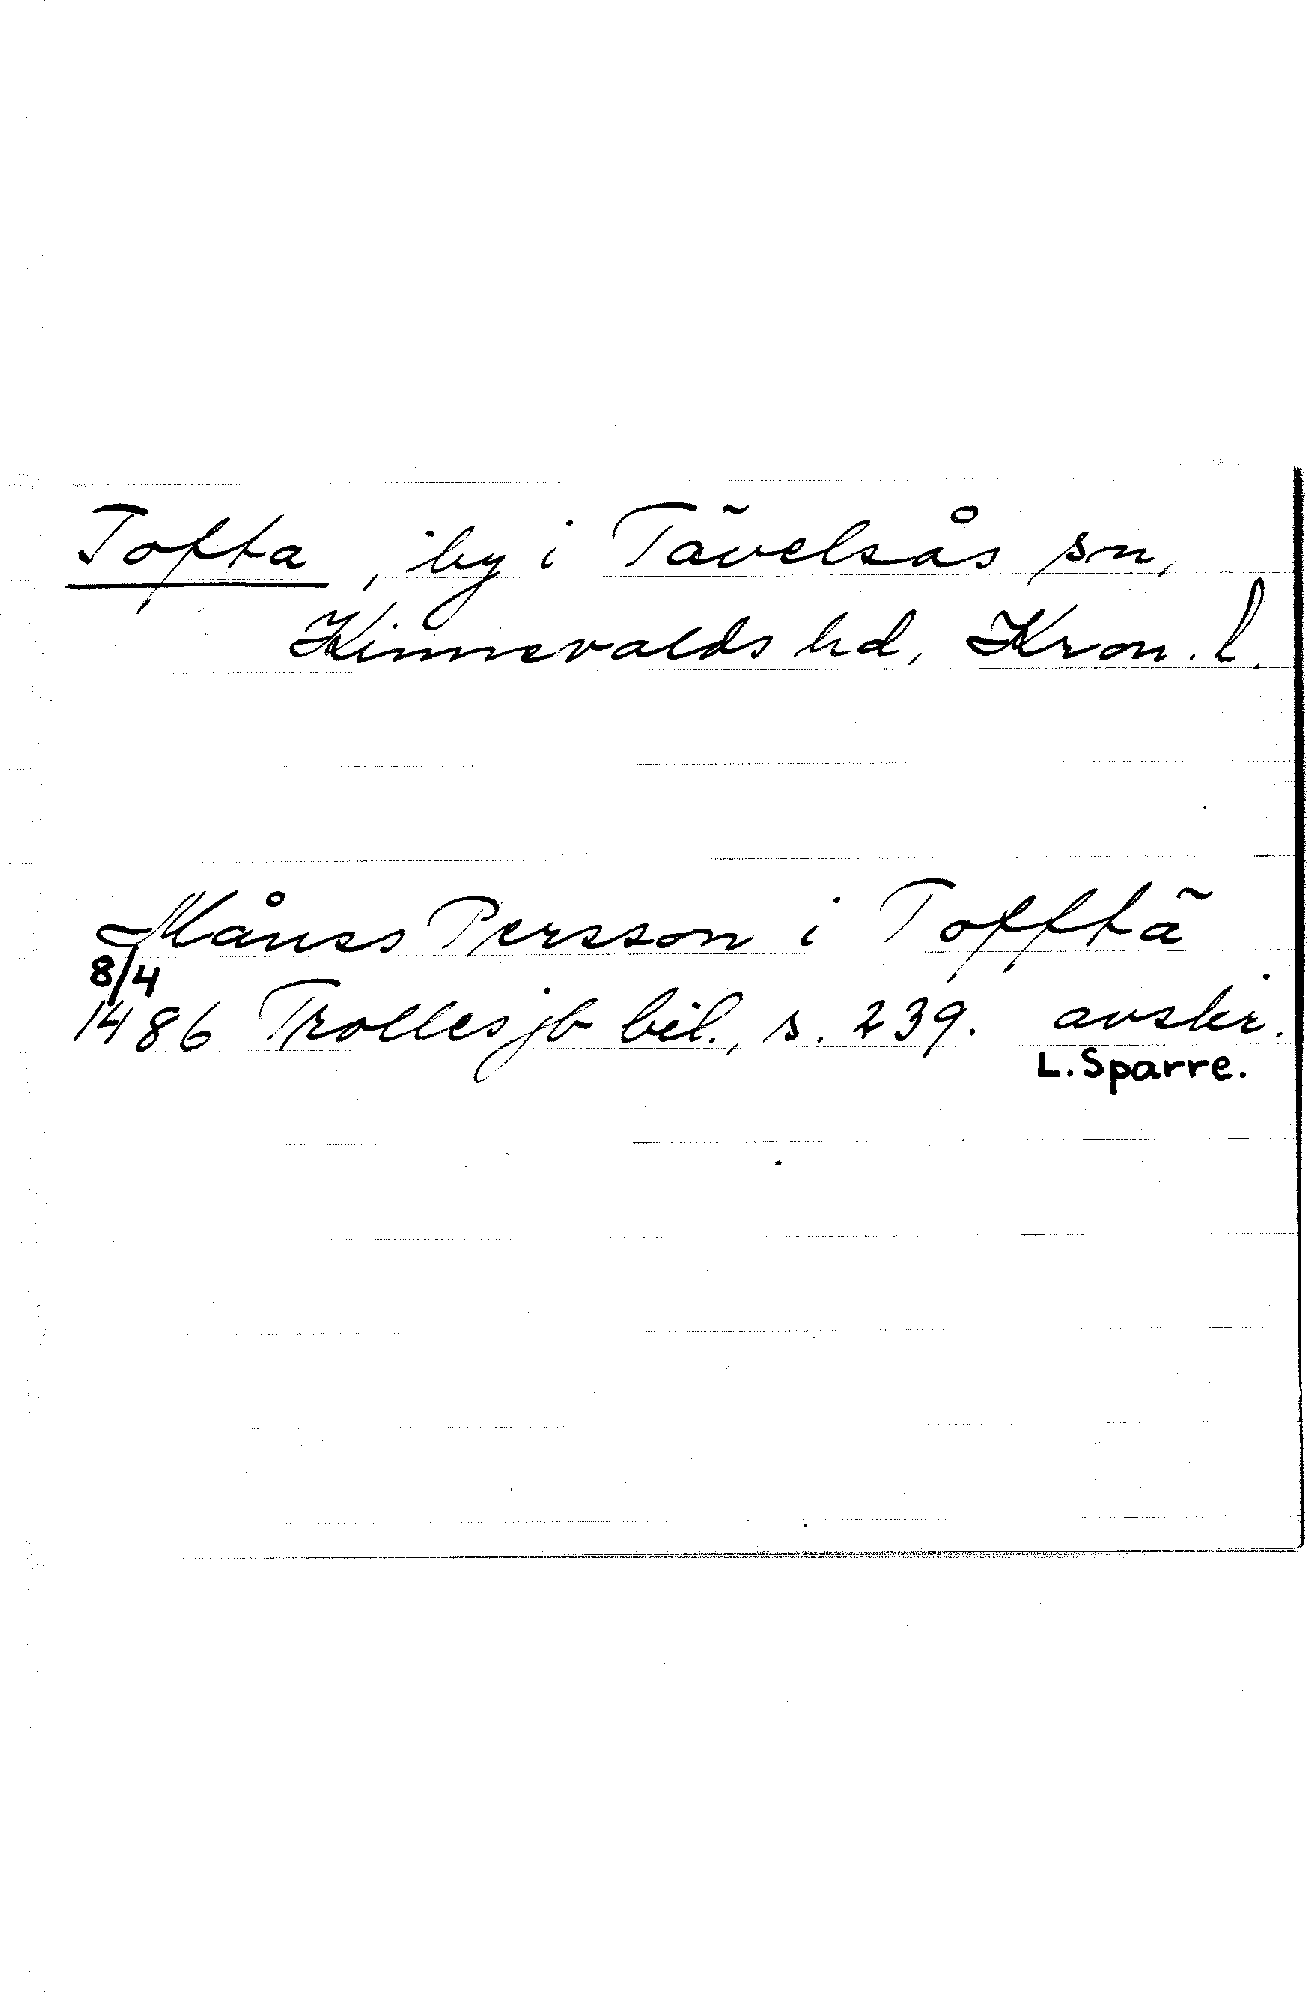 Tofta, by i Tävelsås sn,
Kinnevalds hd, Kron. l.
Månss Persson i Tofftä
8/4
1486 Trolles jb bil., s. 239. avskr.
L. Sparre.